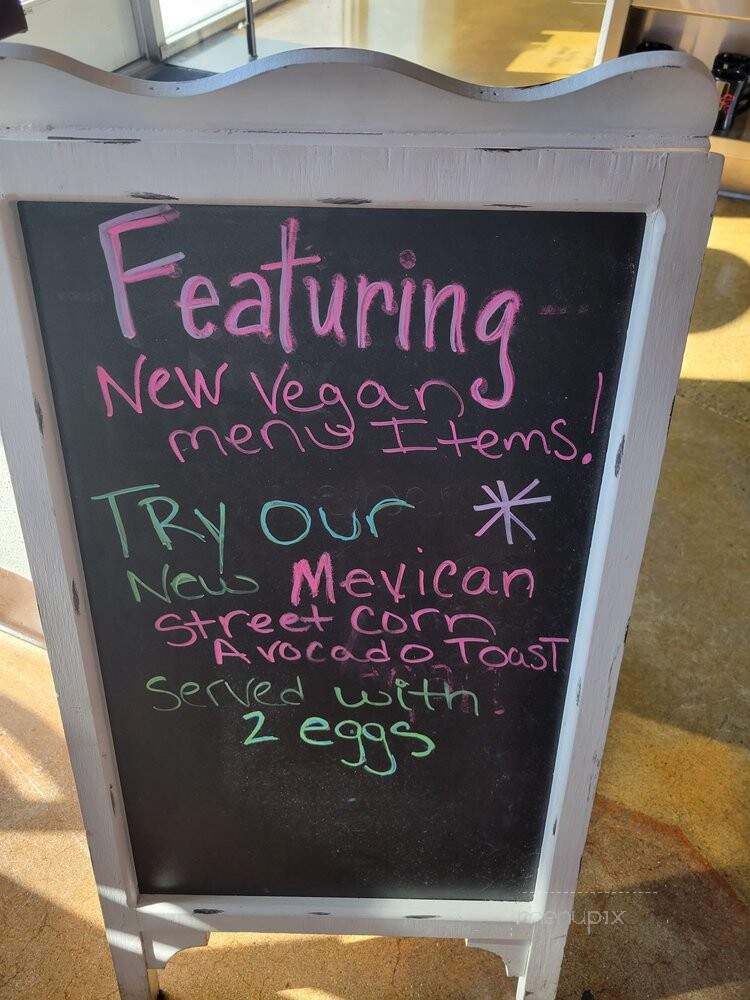 Featuring
New Vegan
menu Items!
TRy our *
New Mexican
Street corn
Avocado Toast
Served with
2 eggs
menupix